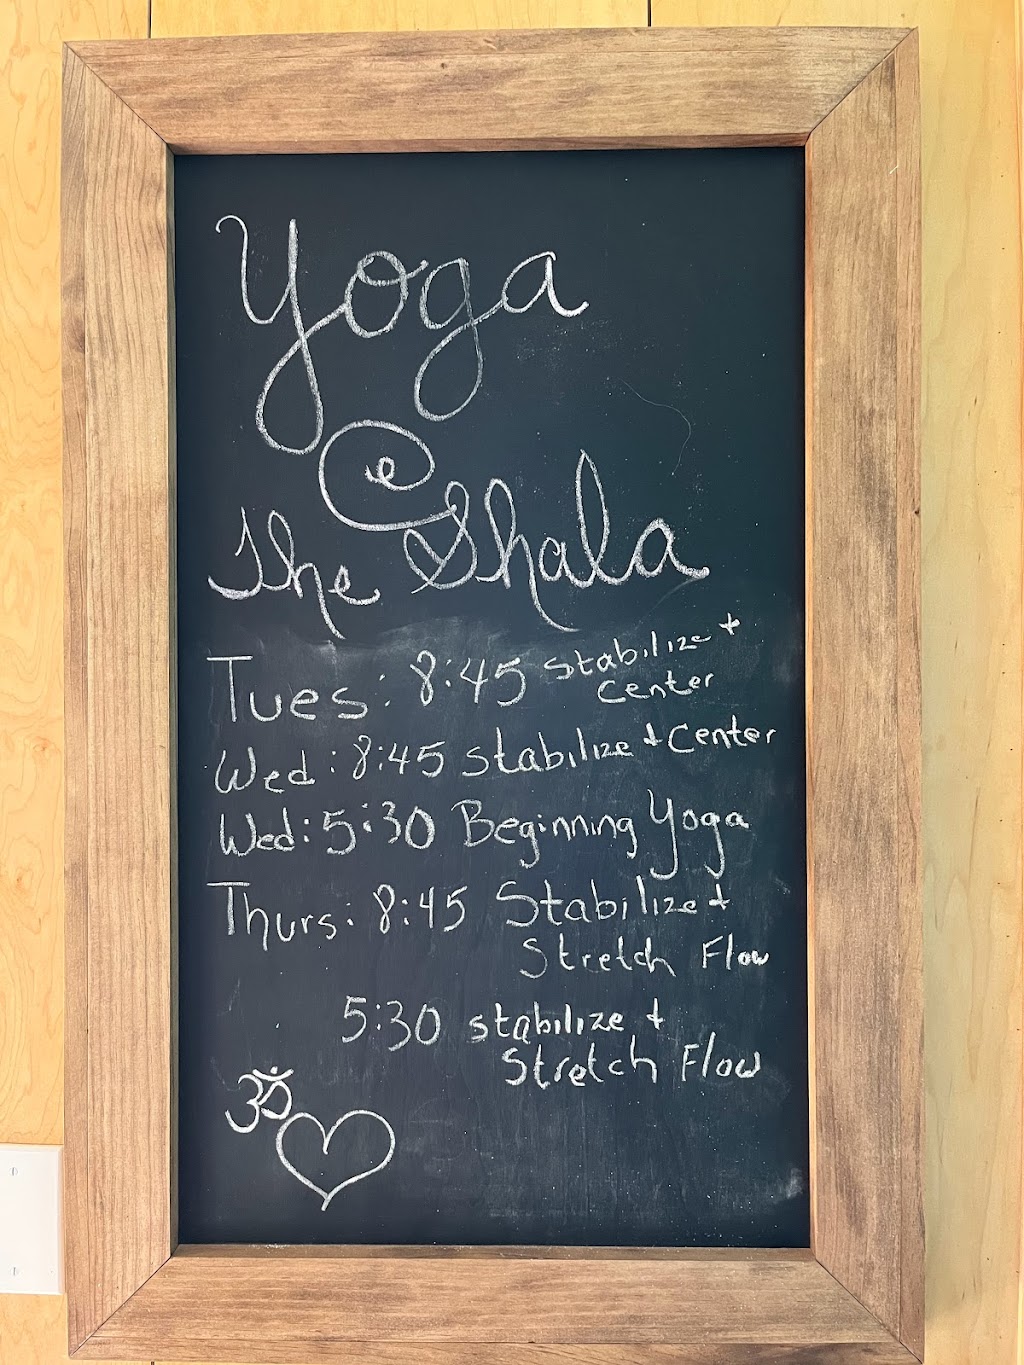 Yoga
@
The Shala
Tues: 8:45 Stabilize +
Center
Wed: 8:45 Stabilize + Center
Wed: 5:30 Beginning Yoga
Thurs: 8:45 Stabilize +
Stretch Flow
5:30 Stabilize +
Stretch Flow
ॐ